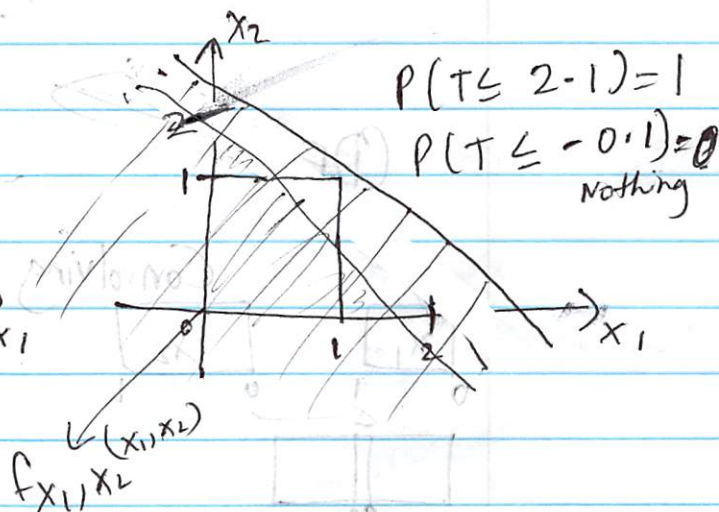 x₂
P(T ≤ 2.1) = 1
P(T ≤ -0.1) = 0
Nothing
2
1
0
1
2
x₁
x₁
f x₁, x₂ (x₁, x₂)